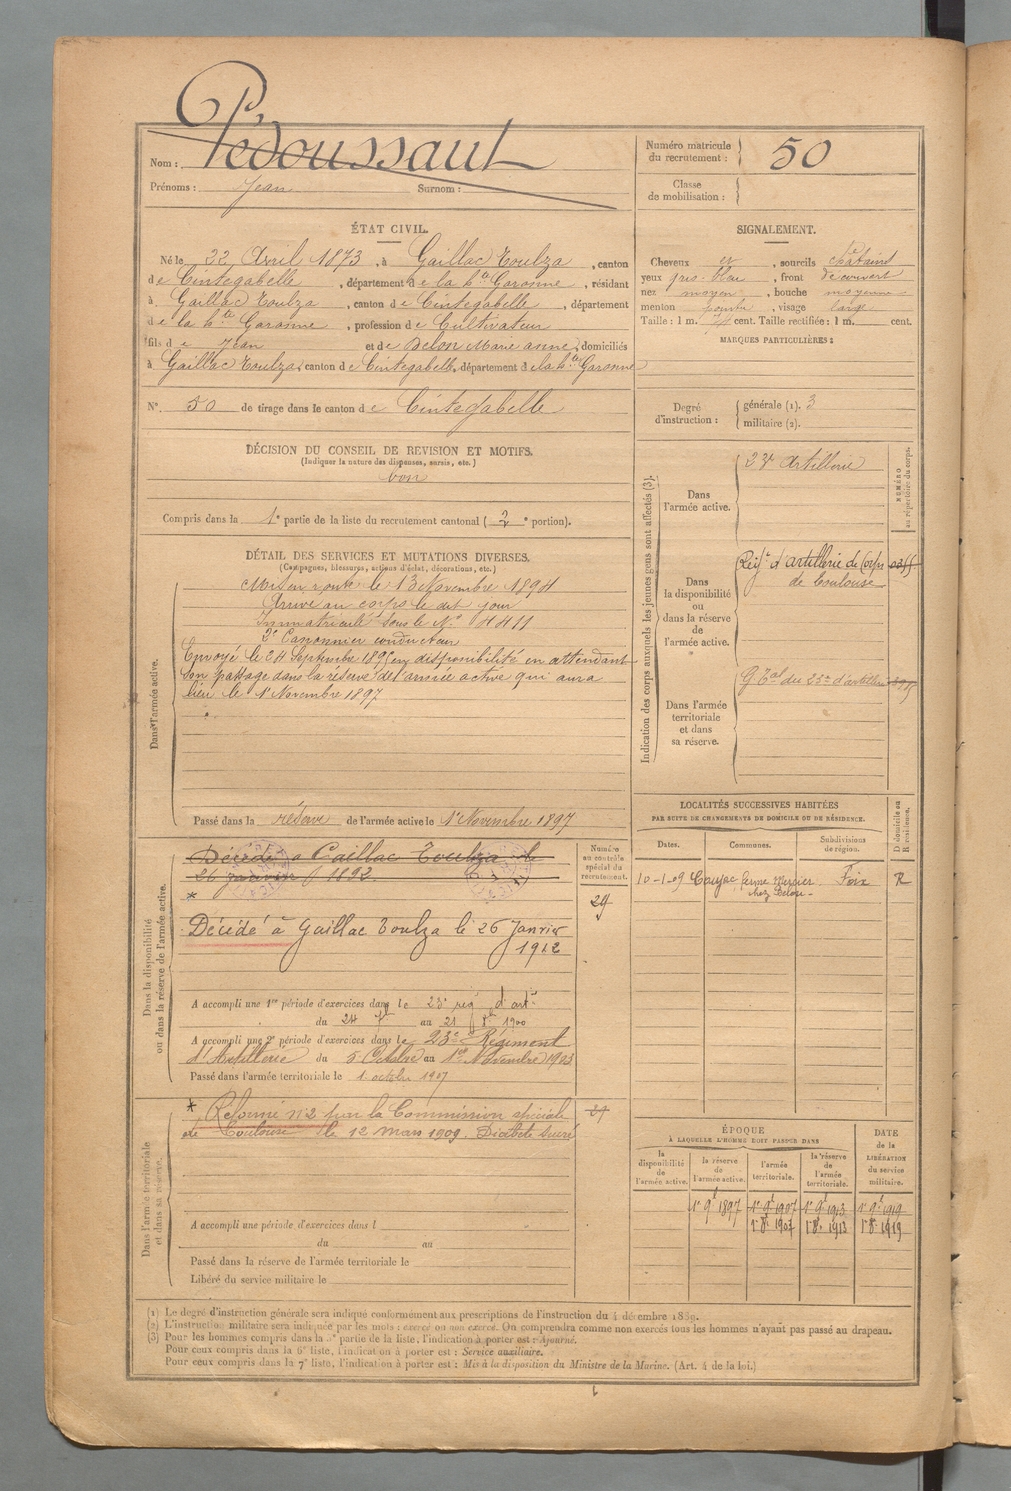 Nom : Pédoussaut
Prénoms : Jean Surnom :
Numéro matricule du recrutement : 50
Classe de mobilisation :
ÉTAT CIVIL.
Né le 22 Avril 1873, à Gaillac Toulza, canton
de Cintegabelle, département de la hte Garonne, résidant
à Gaillac Toulza, canton de Cintegabelle, département
de la hte Garonne, profession de Cultivateur
fils de Jean et de Belon Marie anne, domiciliés
à Gaillac Toulza, canton de Cintegabelle, département de la hte Garonne
N° 50 de tirage dans le canton de Cintegabelle
SIGNALEMENT.
Cheveux et, sourcils châtains
yeux gris-bleu, front découvert
nez moyen, bouche moyenne
menton pointu, visage large
Taille : 1 m. cent. Taille rectifiée : 1 m. cent.
MARQUES PARTICULIÈRES :
Degré d'instruction : générale (1). 3
militaire (2).
DÉCISION DU CONSEIL DE REVISION ET MOTIFS.
(Indiquer la nature des dispenses, sursis, etc.)
bon
Compris dans la 1e partie de la liste du recrutement cantonal (2e portion).
DÉTAIL DES SERVICES ET MUTATIONS DIVERSES.
(Campagnes, blessures, actions d'éclat, décorations, etc.)
Dans l'armée active.
Mis en route le 13 Novembre 1894
Arrivé au corps le dit jour
Immatriculé sous le N° 4411
2e Canonnier conducteur
Envoyé le 24 Septembre 1895 en disponibilité en attendant
son passage dans la réserve de l'armée active qui aura
lieu le 1r Novembre 1897
Passé dans la réserve de l'armée active le 1r Novembre 1897
Indication des corps auxquels les jeunes gens sont affectés (3).
NUMÉRO au répertoire du corps.
Dans l'armée active.
23e Artillerie
Dans la disponibilité ou dans la réserve de l'armée active.
Regt d'artillerie de Corps
de Toulouse
Dans l'armée territoriale et dans sa réserve.
G. Tal du 23e d'artillerie
LOCALITÉS SUCCESSIVES HABITÉES
PAR SUITE DE CHANGEMENTS DE DOMICILE OU DE RÉSIDENCE.
Dates. Communes. Subdivisions de région. D domicile ou R résidence.
10-1-09 Caujac, ferme Mercier Foix R
chez Belou
Dans la disponibilité ou dans la réserve de l'armée active.
Numéro au contrôle spécial du recrutement.
Décédé à Gaillac Toulza le
26 janvier 1892
*
29
Décédé à Gaillac Toulza le 26 Janvier
1912
A accompli une 1re période d'exercices dans le 23e rég d'artie
du 24 au 21 1900
A accompli une 2e période d'exercices dans le 23e Régiment
d'Artillerie du 5 Octobre au 1er Novembre 1903
Passé dans l'armée territoriale le 1 octobre 1907
Dans l'armée territoriale et dans sa réserve.
* Réformé n°2 par la Commission spéciale
de Toulouse le 12 mars 1909. Diabète sucré
A accompli une période d'exercices dans l
du au
Passé dans la réserve de l'armée territoriale le
Libéré du service militaire le
ÉPOQUE
À LAQUELLE L'HOMME DOIT PASSER DANS
DATE de la LIBÉRATION du service militaire.
la disponibilité de l'armée active. la réserve de l'armée active. l'armée territoriale. la réserve de l'armée territoriale.
1r 9e 1897 1r 9e 1907 1r 9e 1913 1r 9e 1919
1r 8e 1907 1r 8e 1913 1r 8e 1919
(1) Le degré d'instruction générale sera indiqué conformément aux prescriptions de l'instruction du 4 décembre 1889.
(2) L'instruction militaire sera indiquée par les mots : exercé ou non exercé. On comprendra comme non exercés tous les hommes n'ayant pas passé au drapeau.
(3) Pour les hommes compris dans la 5e partie de la liste, l'indication à porter est : Ajourné.
Pour ceux compris dans la 6e liste, l'indication à porter est : Service auxiliaire.
Pour ceux compris dans la 7e liste, l'indication à porter est : Mis à la disposition du Ministre de la Marine. (Art. 4 de la loi.)